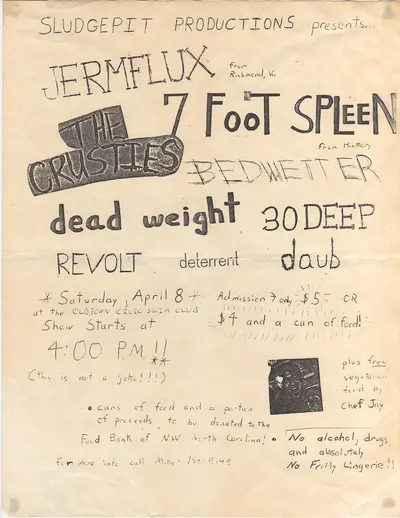 SLUDGEPIT PRODUCTIONS presents.
JERMFLUX
from
Richmond, Va
7 FOOT SPLEEN
from Hickory
THE
CRUSTIES
BEDWETTER
dead weight
30 DEEP
REVOLT
deterrent
daub
* Saturday, April 8 *
at the OLDTOWN CIVIC SWIM CLUB
Show Starts at
4:00 P.M.!!
**
(this is not a joke!!!)
Admission → only $5- OR
$4 and a can of food!
plus free
vegetarian
food by
Chef Jay
• cans of food and a portion
of proceeds to be donated to the
Food Bank of NW North Carolina! •
for more info call Mike-
No alcohol, drugs,
and absolutely
No Frilly Lingerie!!